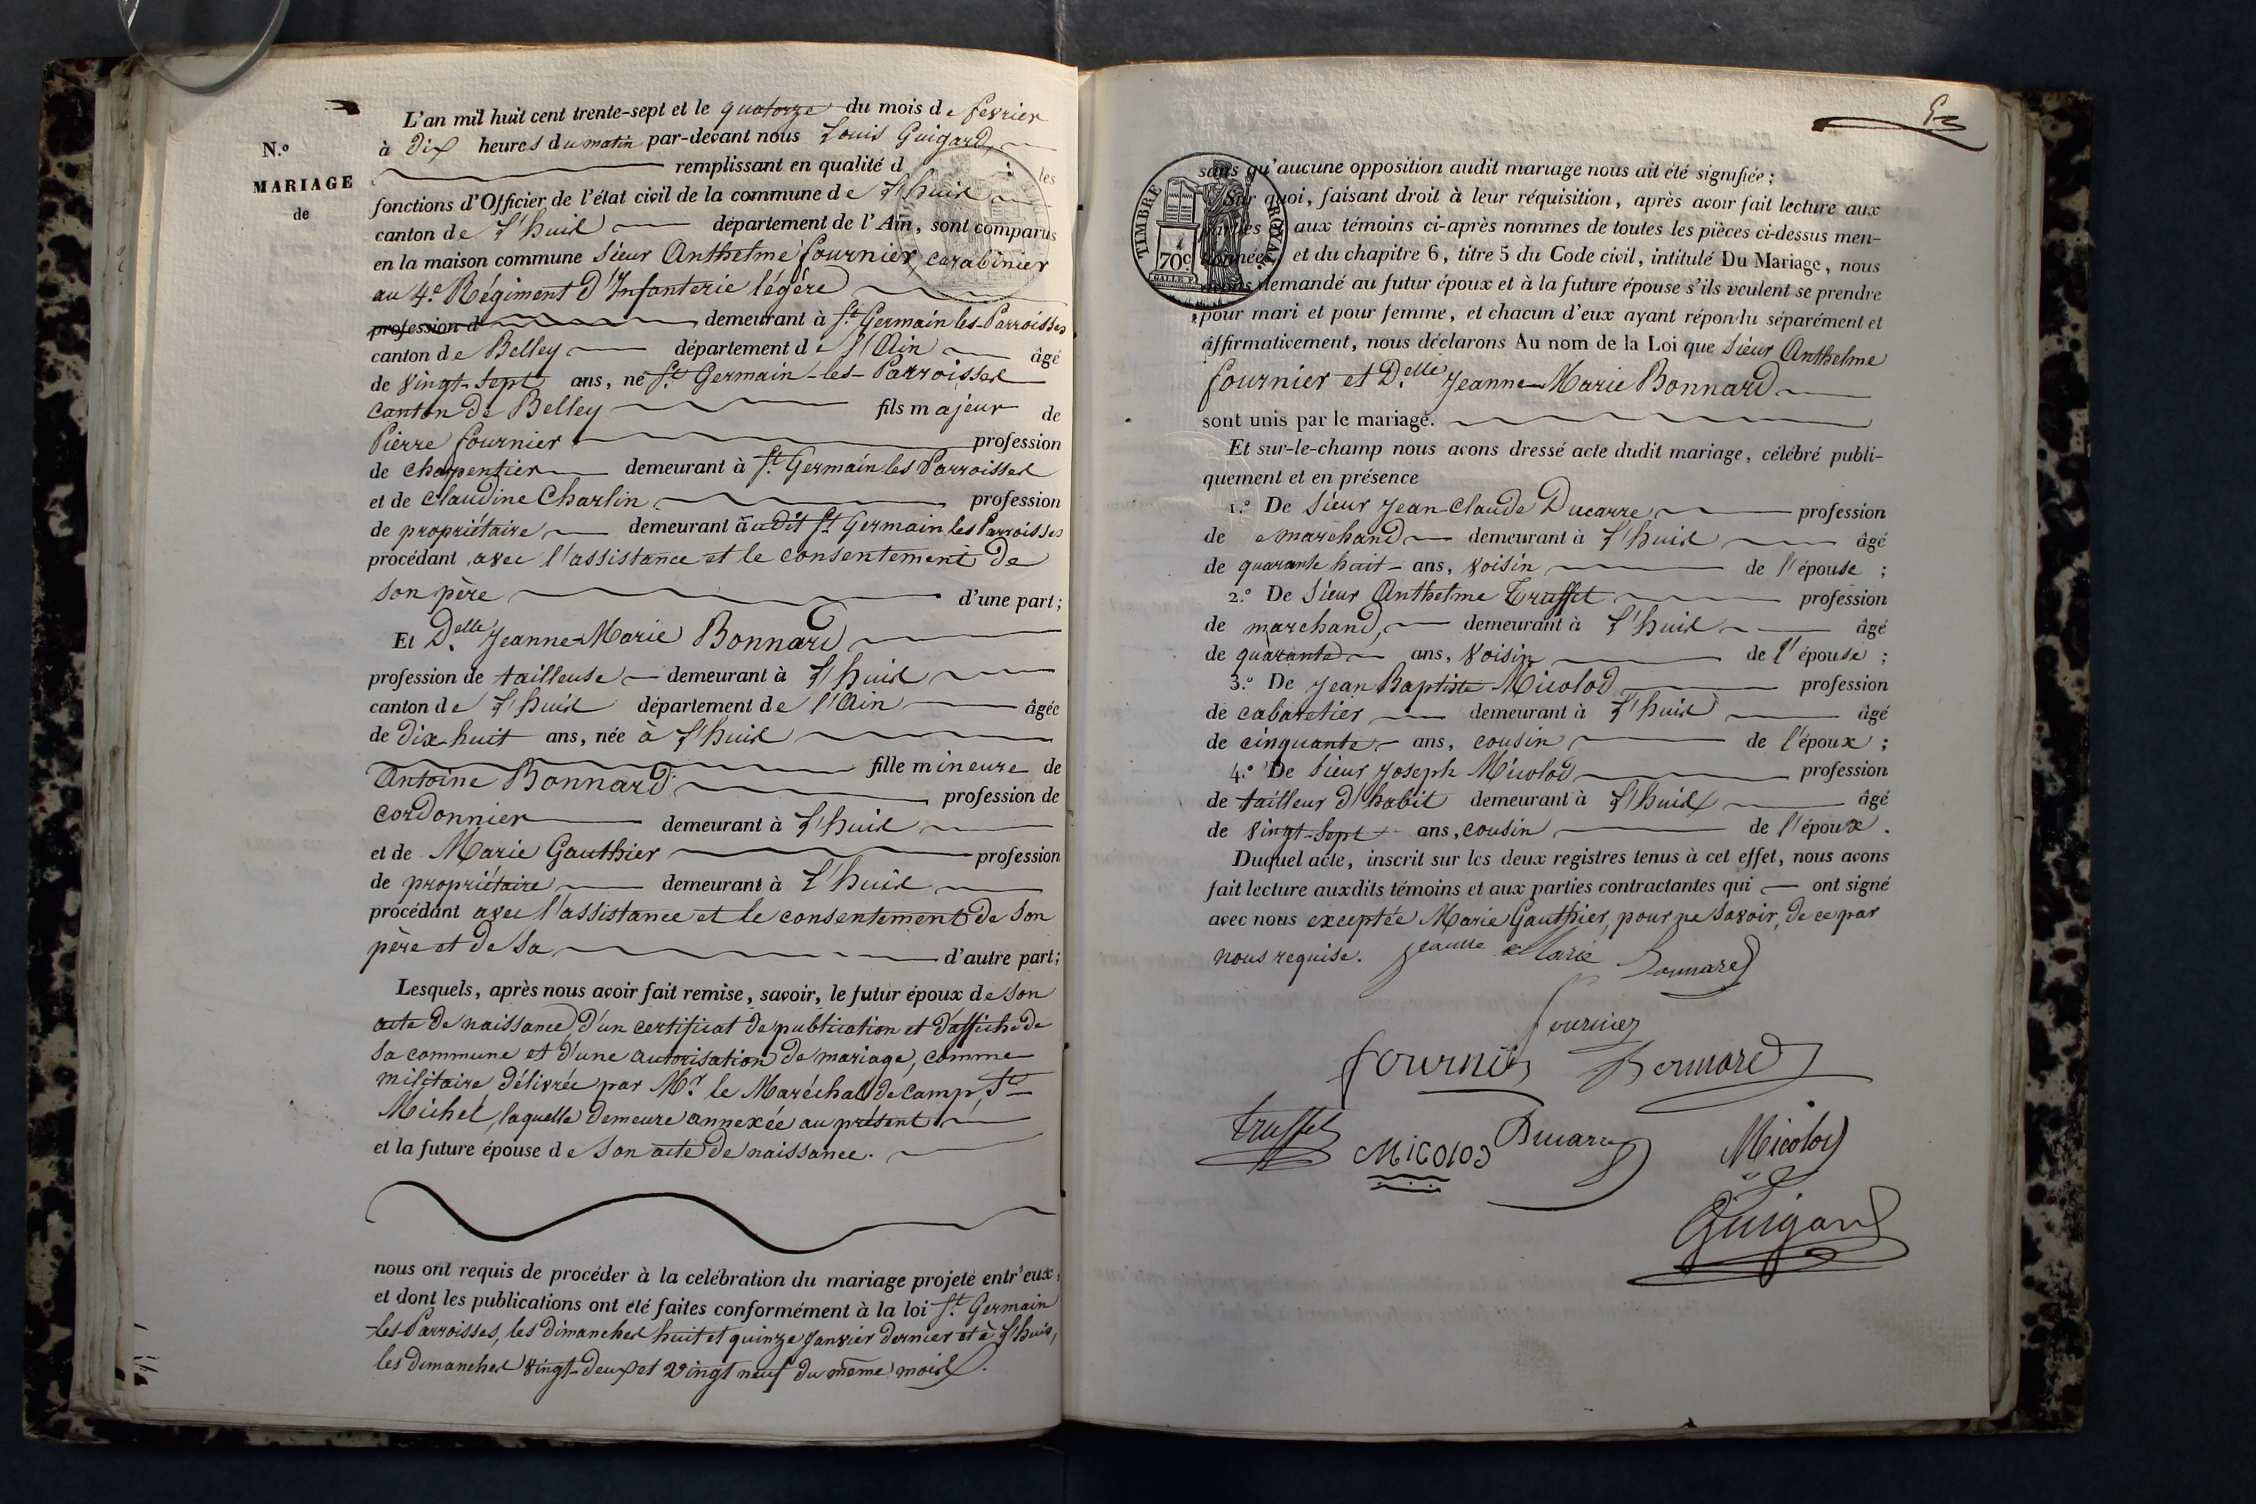 N.º
MARIAGE
de
L'an mil huit cent trente-sept et le quatorze du mois de fevrier
à Dix heures du matin par-devant nous Louis Guigard,
remplissant en qualité d les
fonctions d'Officier de l'état civil de la commune de L'huis
canton de L'huis département de l'Ain, sont comparus
en la maison commune Sieur Anthelme fournier, carabinier
au 4.e Régiment d'Infanterie légère
profession d demeurant à St. Germain les-Parroisses
canton de Belley département de l'Ain âgé
de Vingt-Sept ans, né St. Germain-les-Parroisses
canton de Belley fils majeur de
Pierre fournier profession
de charpentier demeurant à St. Germain les Parroisses
et de Claudine Charlin profession
de propriétaire demeurant audit St. Germain les Parroisses
procédant avec l'assistance et le consentement de
son père d'une part;
Et D.elle Jeanne-Marie Bonnard
profession de tailleuse demeurant à L'huis
canton de L'huis département de l'Ain âgée
de dix-huit ans, née à L'huis
fille mineure de
Antoine Bonnard profession de
cordonnier demeurant à L'huis
et de Marie Gauthier profession
de propriétaire demeurant à L'huis
procédant avec l'assistance et le consentement de son
père et de sa d'autre part;
Lesquels, après nous avoir fait remise, savoir, le futur époux de son
acte de naissance, d'un certificat de publication et d'affiche de
sa commune et d'une autorisation de mariage, comme
militaire délivrée par Mr. le Maréchal de Camp, St.
Michel, laquelle demeure annexée au présent
et la future épouse de son acte de naissance.
nous ont requis de procéder à la celébration du mariage projeté entr'eux,
et dont les publications ont été faites conformément à la loi St. Germain
-les-Parroisses, les dimanches huit et quinze Janvier dernier et à L'huis,
les dimanches vingt-deux et vingt neuf du même mois.
TIMBRE ROYAL
70c.
sans qu'aucune opposition audit mariage nous ait été signifiée;
Sur quoi, faisant droit à leur réquisition, après avoir fait lecture aux
parties aux témoins ci-après nommes de toutes les pièces ci-dessus men-
tionnées, et du chapitre 6, titre 5 du Code civil, intitulé Du Mariage, nous
avons demandé au futur époux et à la future épouse s'ils veulent se prendre
pour mari et pour femme, et chacun d'eux ayant répondu séparément et
affirmativement, nous déclarons Au nom de la Loi que Sieur Anthelme
fournier et D.elle Jeanne-Marie Bonnard
sont unis par le mariage.
Et sur-le-champ nous avons dressé acte dudit mariage, célébré publi-
quement et en présence
1.º De Sieur Jean-Claude Ducarre profession
de marchand demeurant à L'huis âgé
de quarante huit ans, voisin de l'épouse;
2.º De Sieur Anthelme Truffet profession
de marchand, demeurant à L'huis âgé
de quarante ans, voisin de l'épouse;
3.º De Jean Baptiste Micolod profession
de cabaretier demeurant à L'huis âgé
de cinquante ans, cousin de l'époux;
4.º De Sieur Joseph Micolod profession
de tailleur d'habit demeurant à L'huis âgé
de Vingt-Sept ans, cousin de l'époux.
Duquel acte, inscrit sur les deux registres tenus à cet effet, nous avons
fait lecture auxdits témoins et aux parties contractantes qui ont signé
avec nous exceptée Marie Gauthier, pour ne savoir, de ce par
nous requise. Jeanne Marie Bonnard
fournier
fournier Bonnard
Truffet Micolod Ducarre Micolod
Guigard